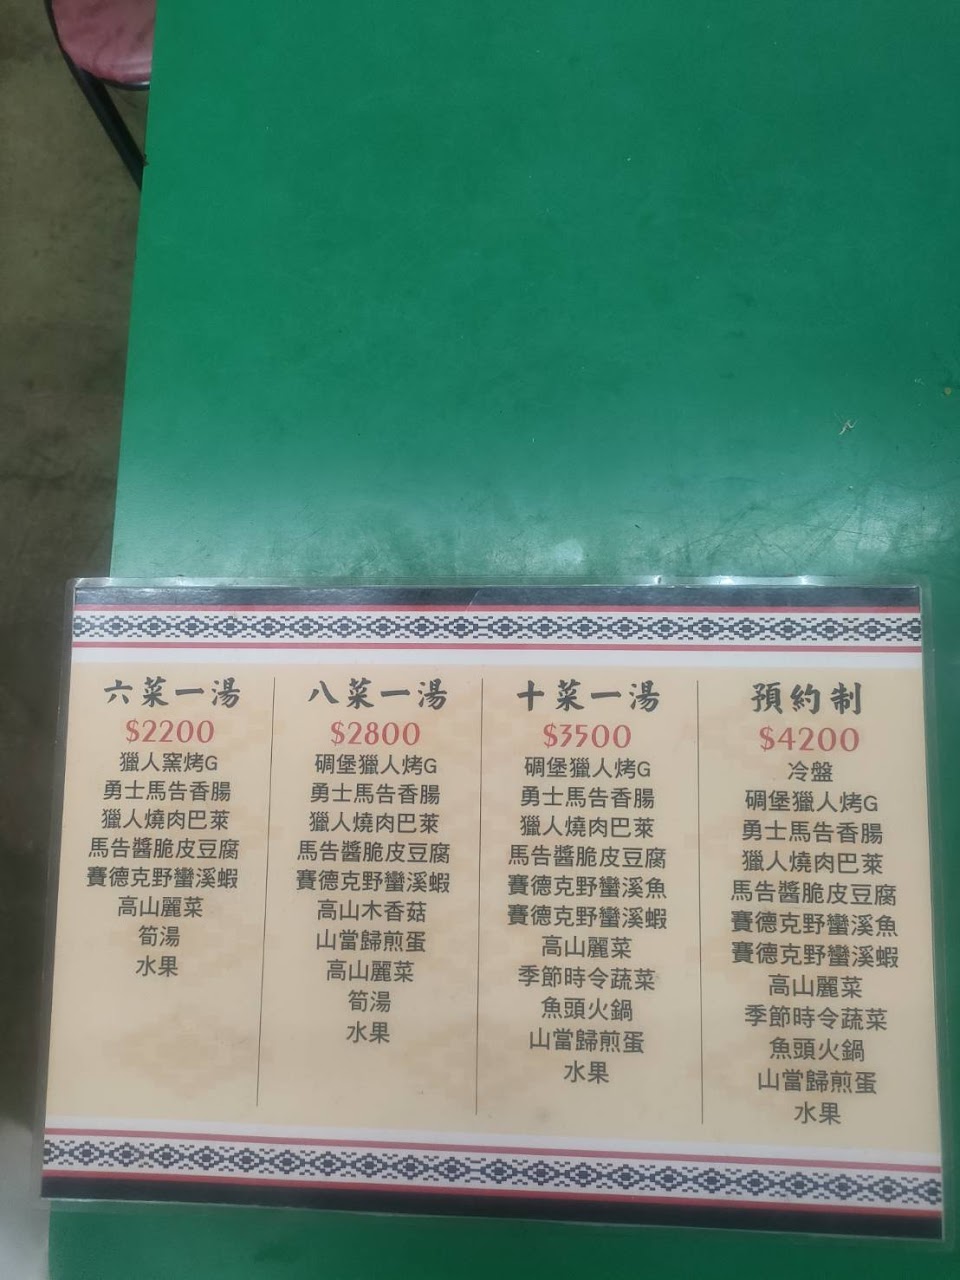 六菜一湯
$2200
獵人窯烤G
勇士馬告香腸
獵人燒肉巴萊
馬告醬脆皮豆腐
賽德克野蠻溪蝦
高山麗菜
筍湯
水果
八菜一湯
$2800
碉堡獵人烤G
勇士馬告香腸
獵人燒肉巴萊
馬告醬脆皮豆腐
賽德克野蠻溪蝦
高山木香菇
山當歸煎蛋
高山麗菜
筍湯
水果
十菜一湯
$3500
碉堡獵人烤G
勇士馬告香腸
獵人燒肉巴萊
馬告醬脆皮豆腐
賽德克野蠻溪魚
賽德克野蠻溪蝦
高山麗菜
季節時令蔬菜
魚頭火鍋
山當歸煎蛋
水果
預約制
$4200
冷盤
碉堡獵人烤G
勇士馬告香腸
獵人燒肉巴萊
馬告醬脆皮豆腐
賽德克野蠻溪魚
賽德克野蠻溪蝦
高山麗菜
季節時令蔬菜
魚頭火鍋
山當歸煎蛋
水果